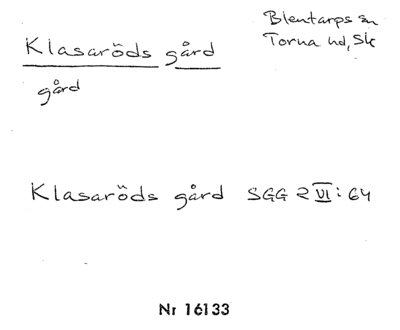 Klasaröds gård
gård
Blentarps sn
Torna hd, Sk
Klasaröds gård SGG 2 VI: 64
Nr 16133